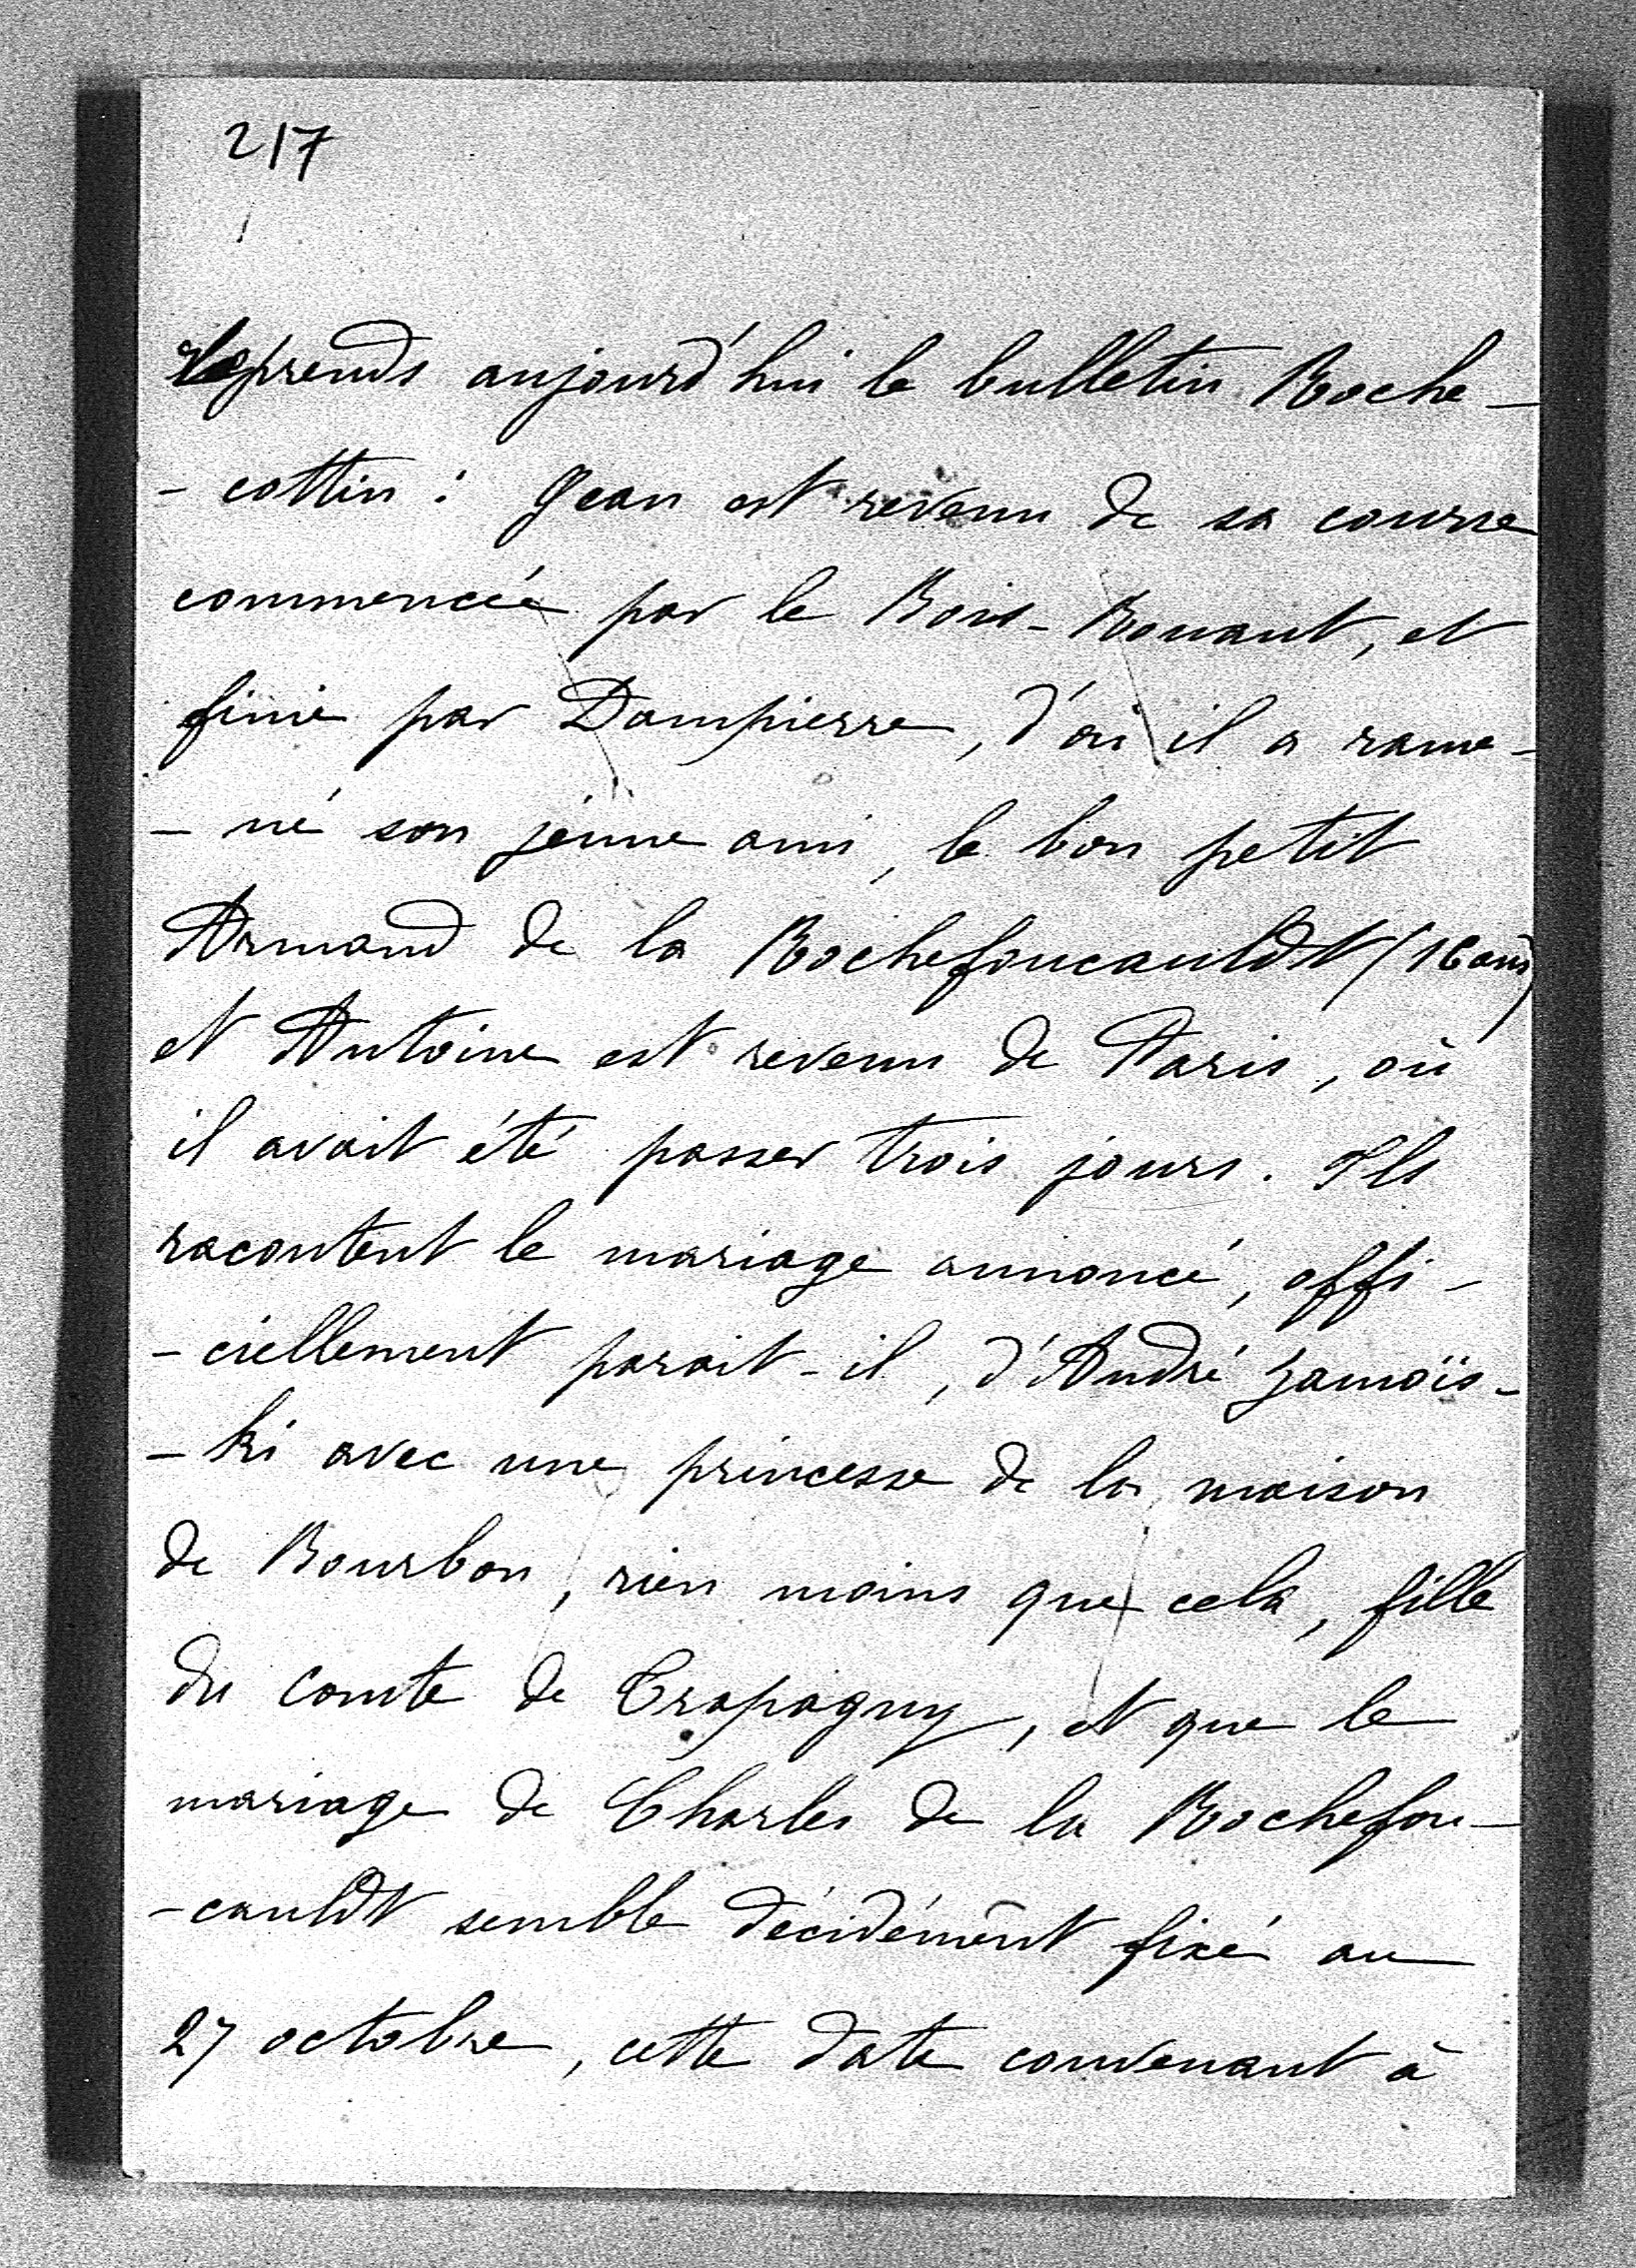 217
reprends aujourd'hui le bulletin Roche-
-cottin : Jean est revenu de sa course
commencée par le Bois-Rouant, et
finie par Dampierre, d'où il a rame-
-né son jeune ami, le bon petit
Armand de la Rochefoucauldt (16 ans)
et Antoine est revenu de Paris, où
il avait été passer trois jours. Ils
racontent le mariage annoncé, offi-
-ciellement parait-il, d'André Zamoïs-
-ki avec une princesse de la maison
de Bourbon, rien moins que cela, fille
du comte de Trapagny, et que le
mariage de Charles de la Rochefou-
-cauldt semble décidément fixé au
27 octobre, cette date convenant à